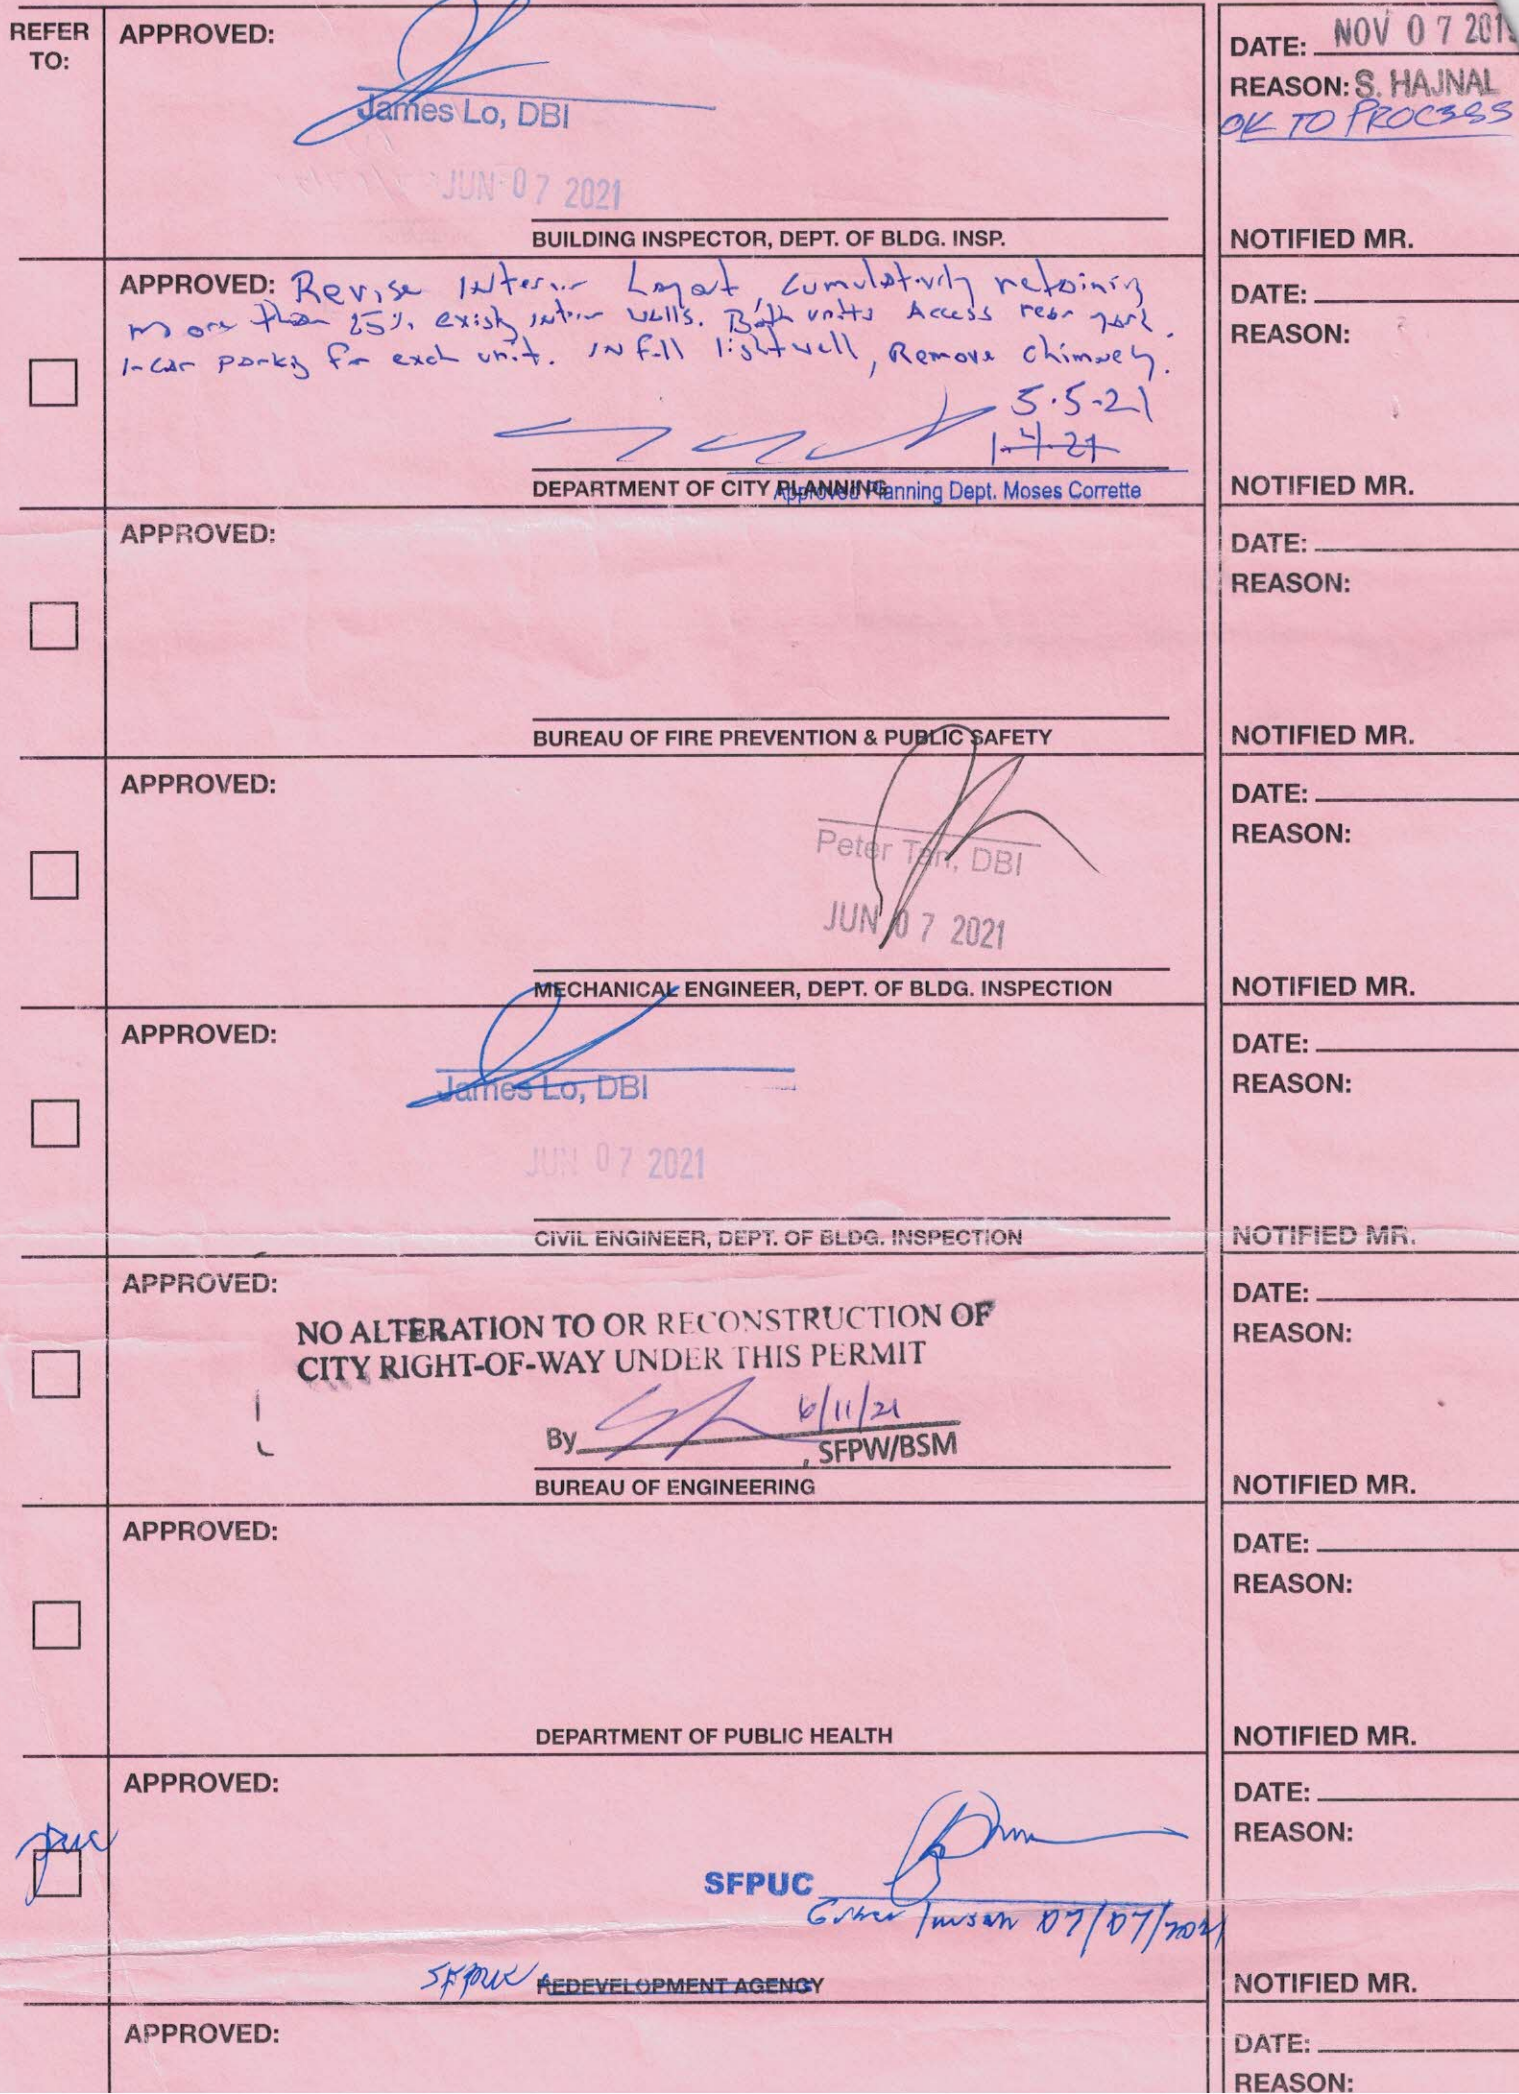 REFER
TO:
APPROVED:
James Lo, DBI
JUN 07 2021
BUILDING INSPECTOR, DEPT. OF BLDG. INSP.
DATE: NOV 07 201
REASON: S. HAJNAL
OK TO PROCESS
NOTIFIED MR.
APPROVED: Revise Interior Layout, cumulatively retaining
more than 25% existg interior walls. Both units Access rear yard.
1-car parkg for each unit. INfill lightwell, Remove chimney.
5.5.21
1.4.21
DEPARTMENT OF CITY PLANNING
Approved Planning Dept. Moses Corrette
DATE:
REASON:
NOTIFIED MR.
APPROVED:
BUREAU OF FIRE PREVENTION & PUBLIC SAFETY
DATE:
REASON:
NOTIFIED MR.
APPROVED:
Peter Tan, DBI
JUN 07 2021
MECHANICAL ENGINEER, DEPT. OF BLDG. INSPECTION
DATE:
REASON:
NOTIFIED MR.
APPROVED:
James Lo, DBI
JUN 07 2021
CIVIL ENGINEER, DEPT. OF BLDG. INSPECTION
DATE:
REASON:
NOTIFIED MR.
APPROVED:
NO ALTERATION TO OR RECONSTRUCTION OF
CITY RIGHT-OF-WAY UNDER THIS PERMIT
6/11/21
By , SFPW/BSM
BUREAU OF ENGINEERING
DATE:
REASON:
NOTIFIED MR.
APPROVED:
DEPARTMENT OF PUBLIC HEALTH
DATE:
REASON:
NOTIFIED MR.
APPROVED:
PUC
SFPUC
07/07/2021
SFPUC REDEVELOPMENT AGENCY
DATE:
REASON:
NOTIFIED MR.
APPROVED:
DATE:
REASON: